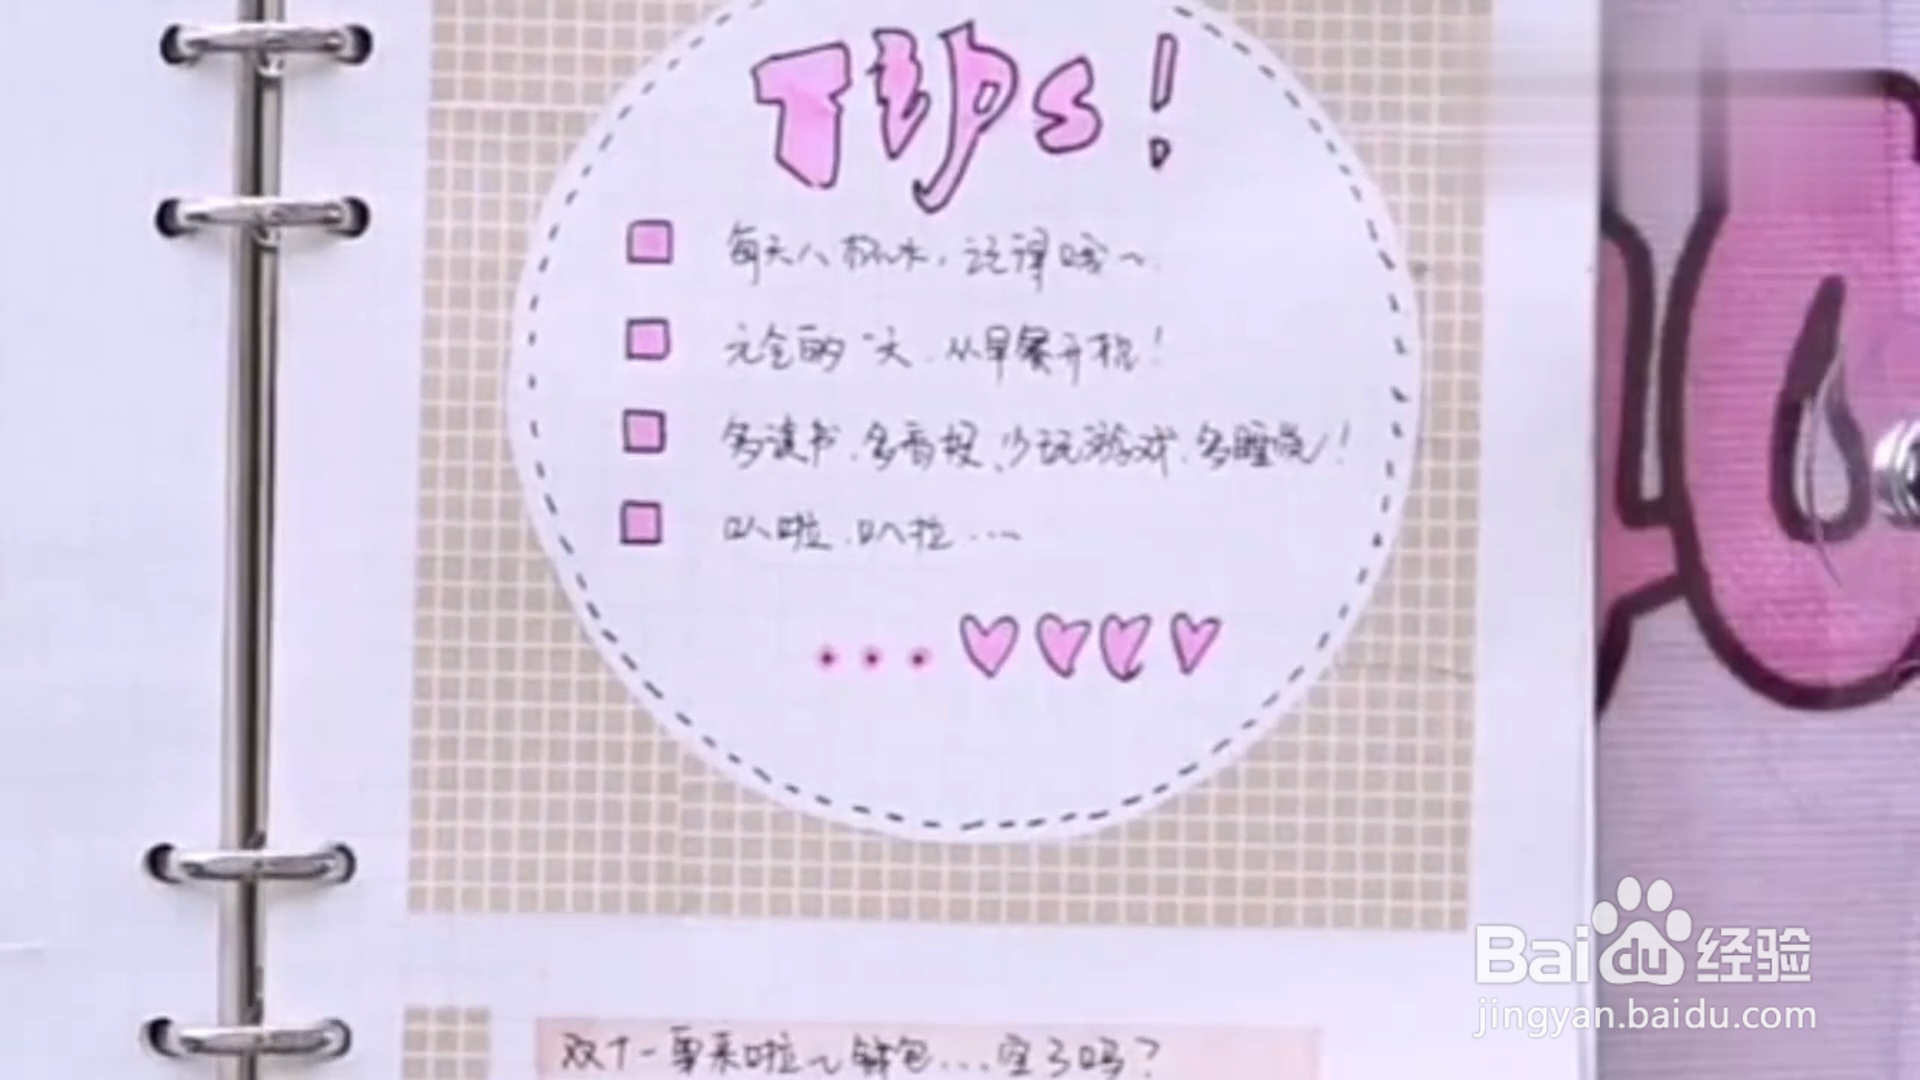 Tips!
每天八杯水，记得哦～
元气的一天.从早餐开始！
多读书.多看报、少玩游戏.多睡觉！
叭啦.叭拉...
双十一要来啦～钱包...空了吗？
Baidu 经验
jingyan.baidu.com